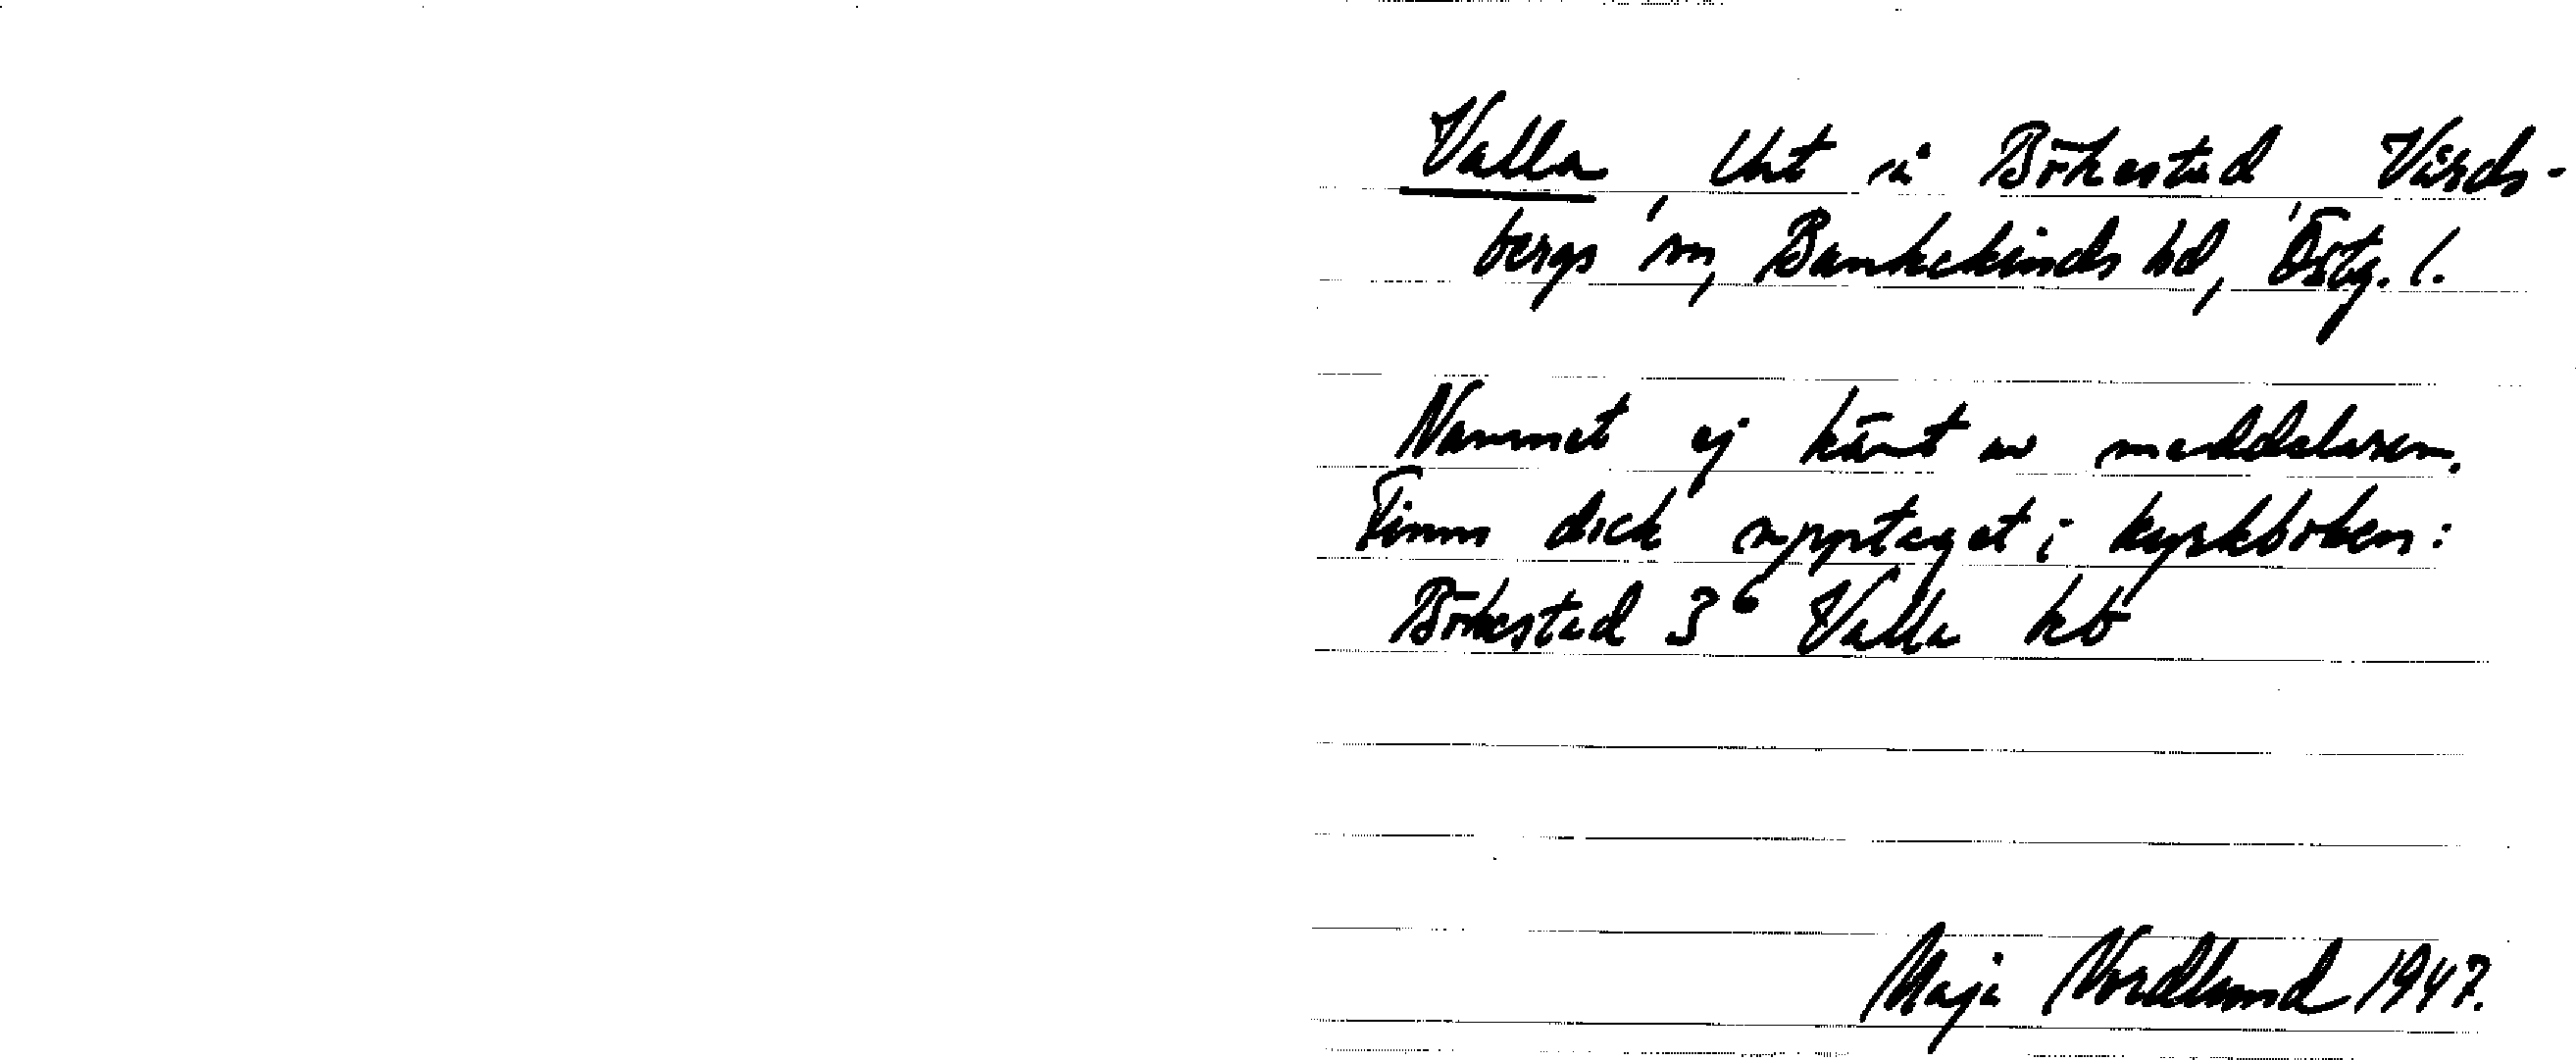 Valla, Utt å Bökestad, Vårds-
bergs sn, Bankekinds hd, Östg. l.
Namnet ej känt av meddelaren.
Finns dock upptaget i kyrkboken:
Bökestad 3⁶ Valla
Maja Nordlund 1947.